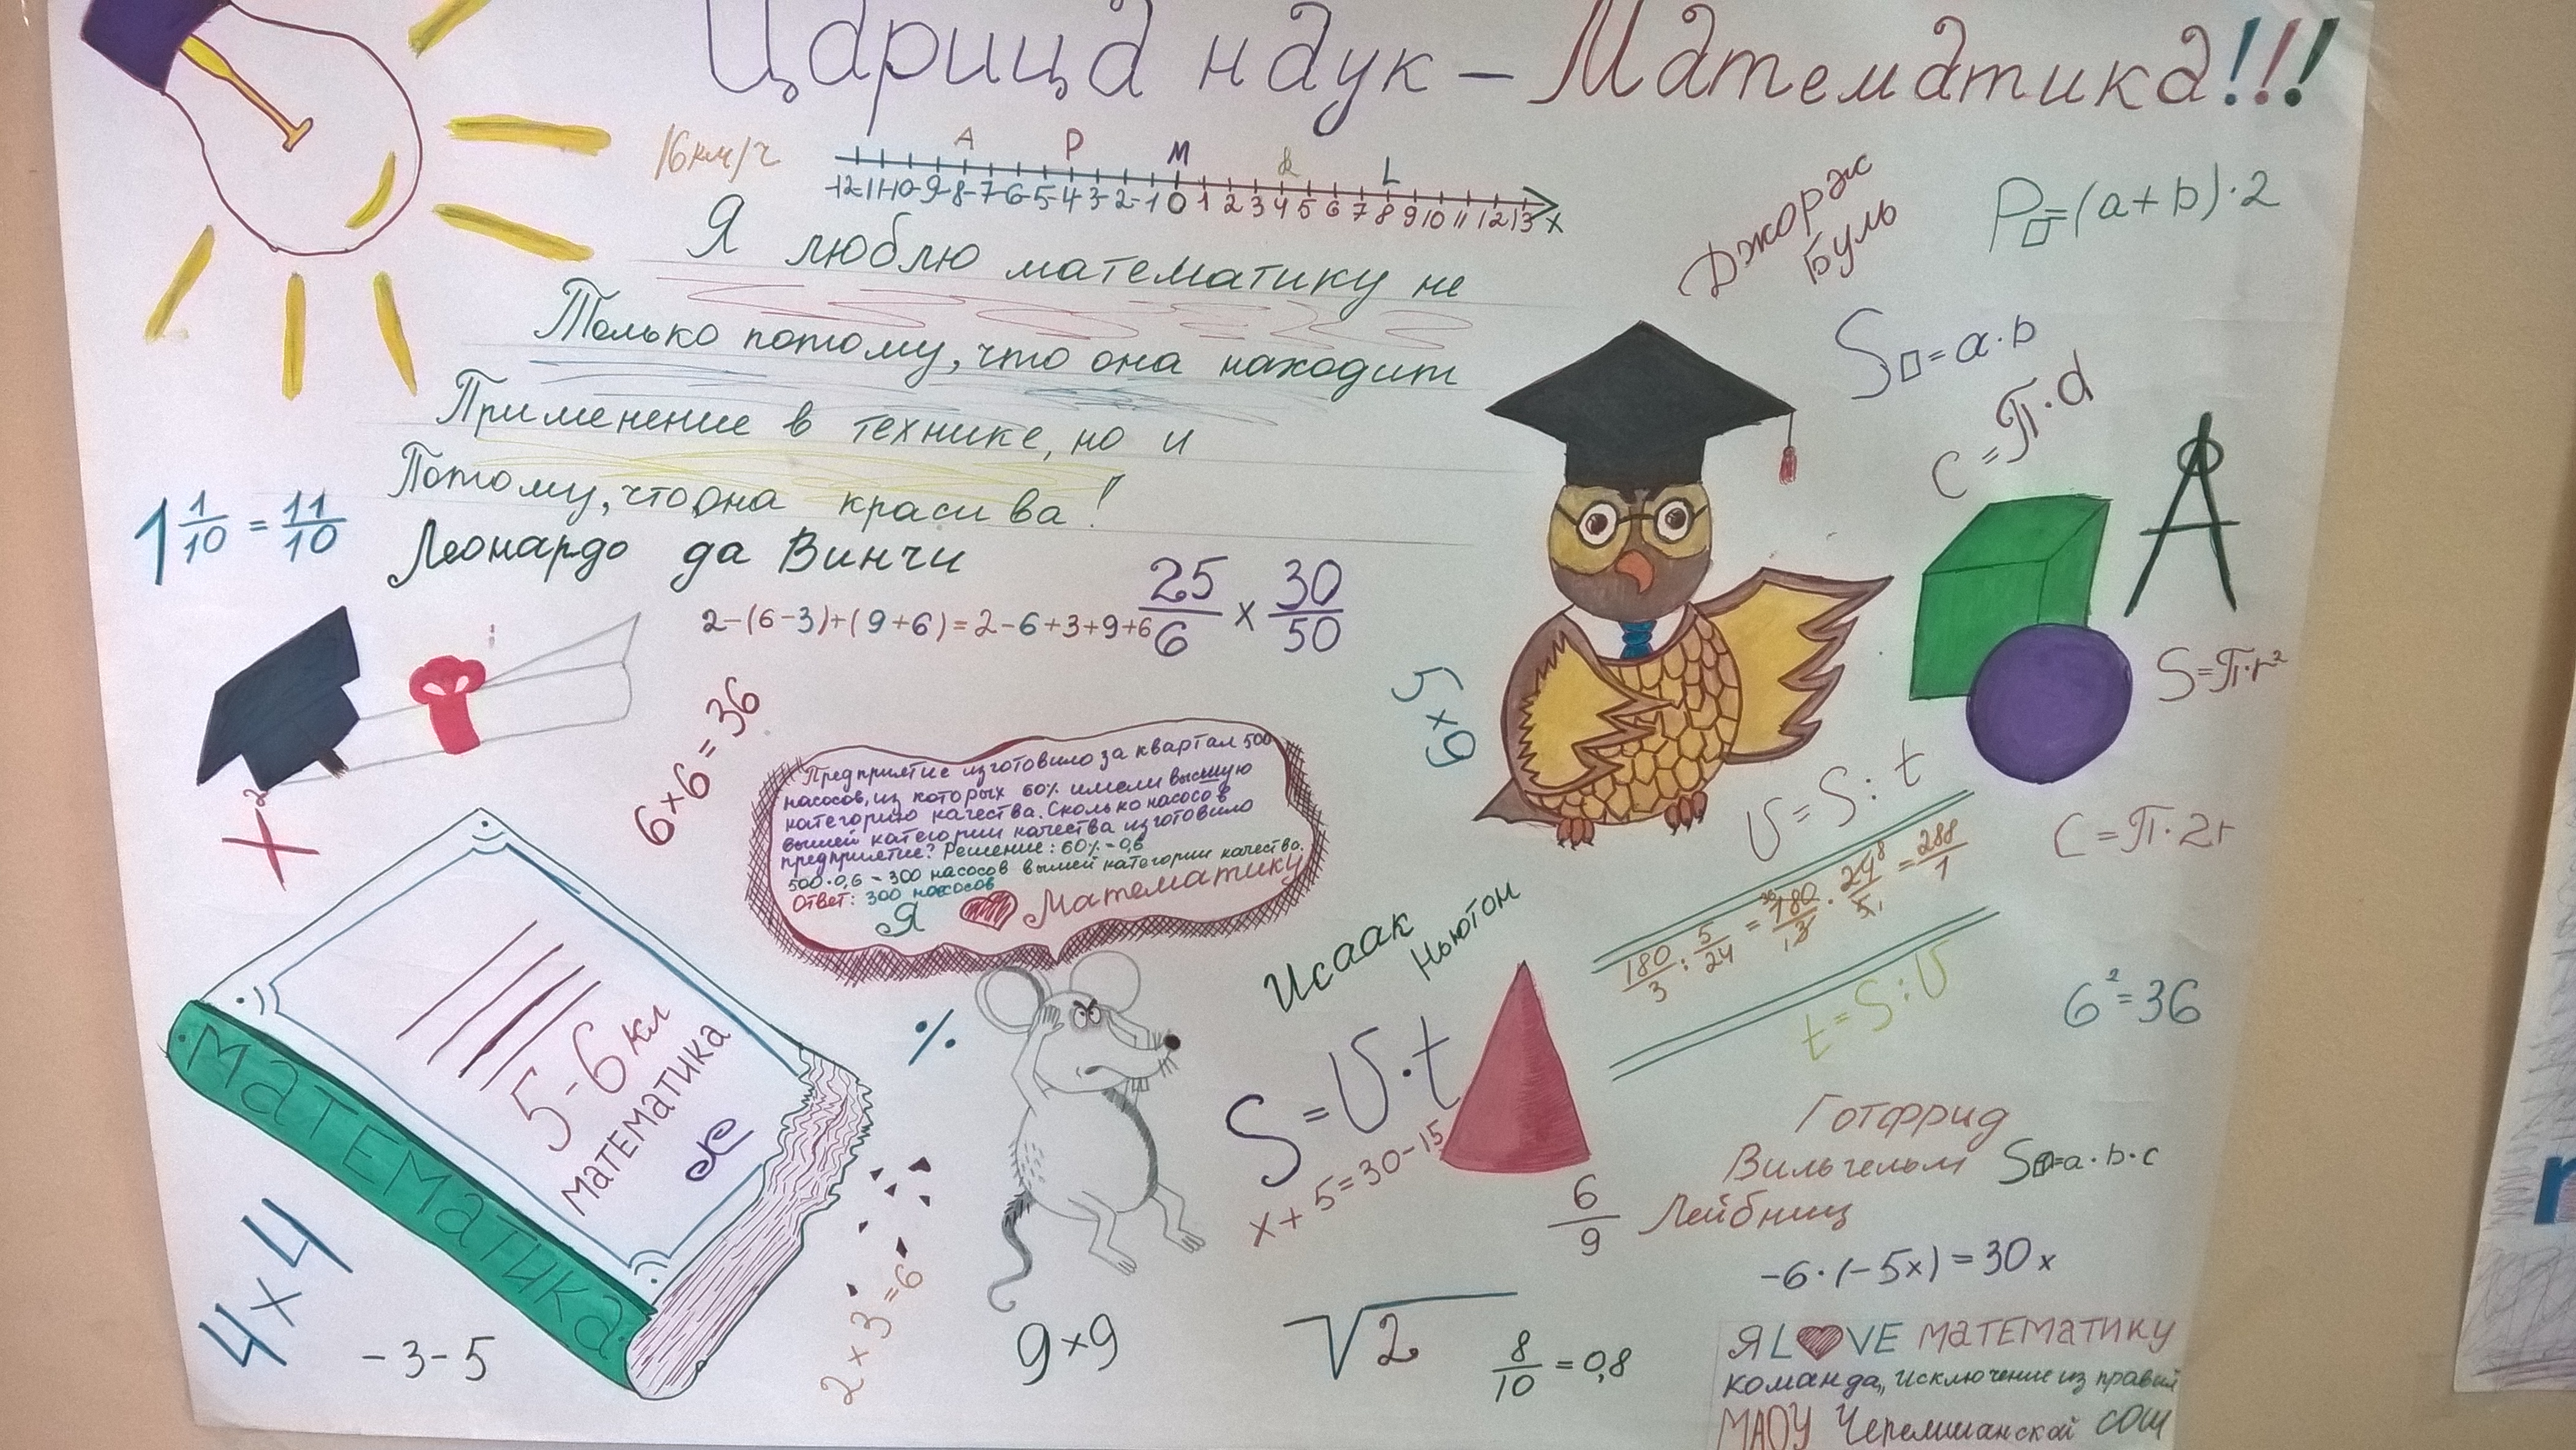 Царица наук – Математика!!!
16км/ч
A P M L
-12 -11 -10 -9 -8 -7 -6 -5 -4 -3 -2 -1 0 1 2 3 4 5 6 7 8 9 10 11 12 13 x
Я люблю математику не
Только потому, что она находит
Применение в технике, но и
Потому, что она красива!
Леонардо да Винчи
Джордж
Буль
P□=(a+b)·2
S□=a·b
C=π·d
1 1/10 = 11/10
2-(6-3)+(9+6)=2-6+3+9+6
25/6 x 30/50
S=π·r²
5×9
6×6=36
x²
Предприятие изготовило за квартал 500
насосов, из которых 60% имели высшую
категорию качества. Сколько насосов
высшей категории качества изготовило
предприятие? Решение: 60%=0,6
500·0,6=300 насосов высшей категории качества.
Ответ: 300 насосов
Я ❤ Математику
V=S:t
C=π·2r
180/3 : 5/24 = 180/3 · 24/5 = 288/1
t=S:V
6²=36
Исаак
Ньютон
5-6 кл
математика
Математика
%
S=V·t
x+5=30-15
6/9
Готфрид
Вильгельм
Лейбниц
S=a·b·c
-6·(-5x)=30x
4×4
-3-5
2×3=6
9×9
√2
8/10=0,8
Я L❤VE математику
команда „исключение из правил
МАОУ Черемшанской СОШ